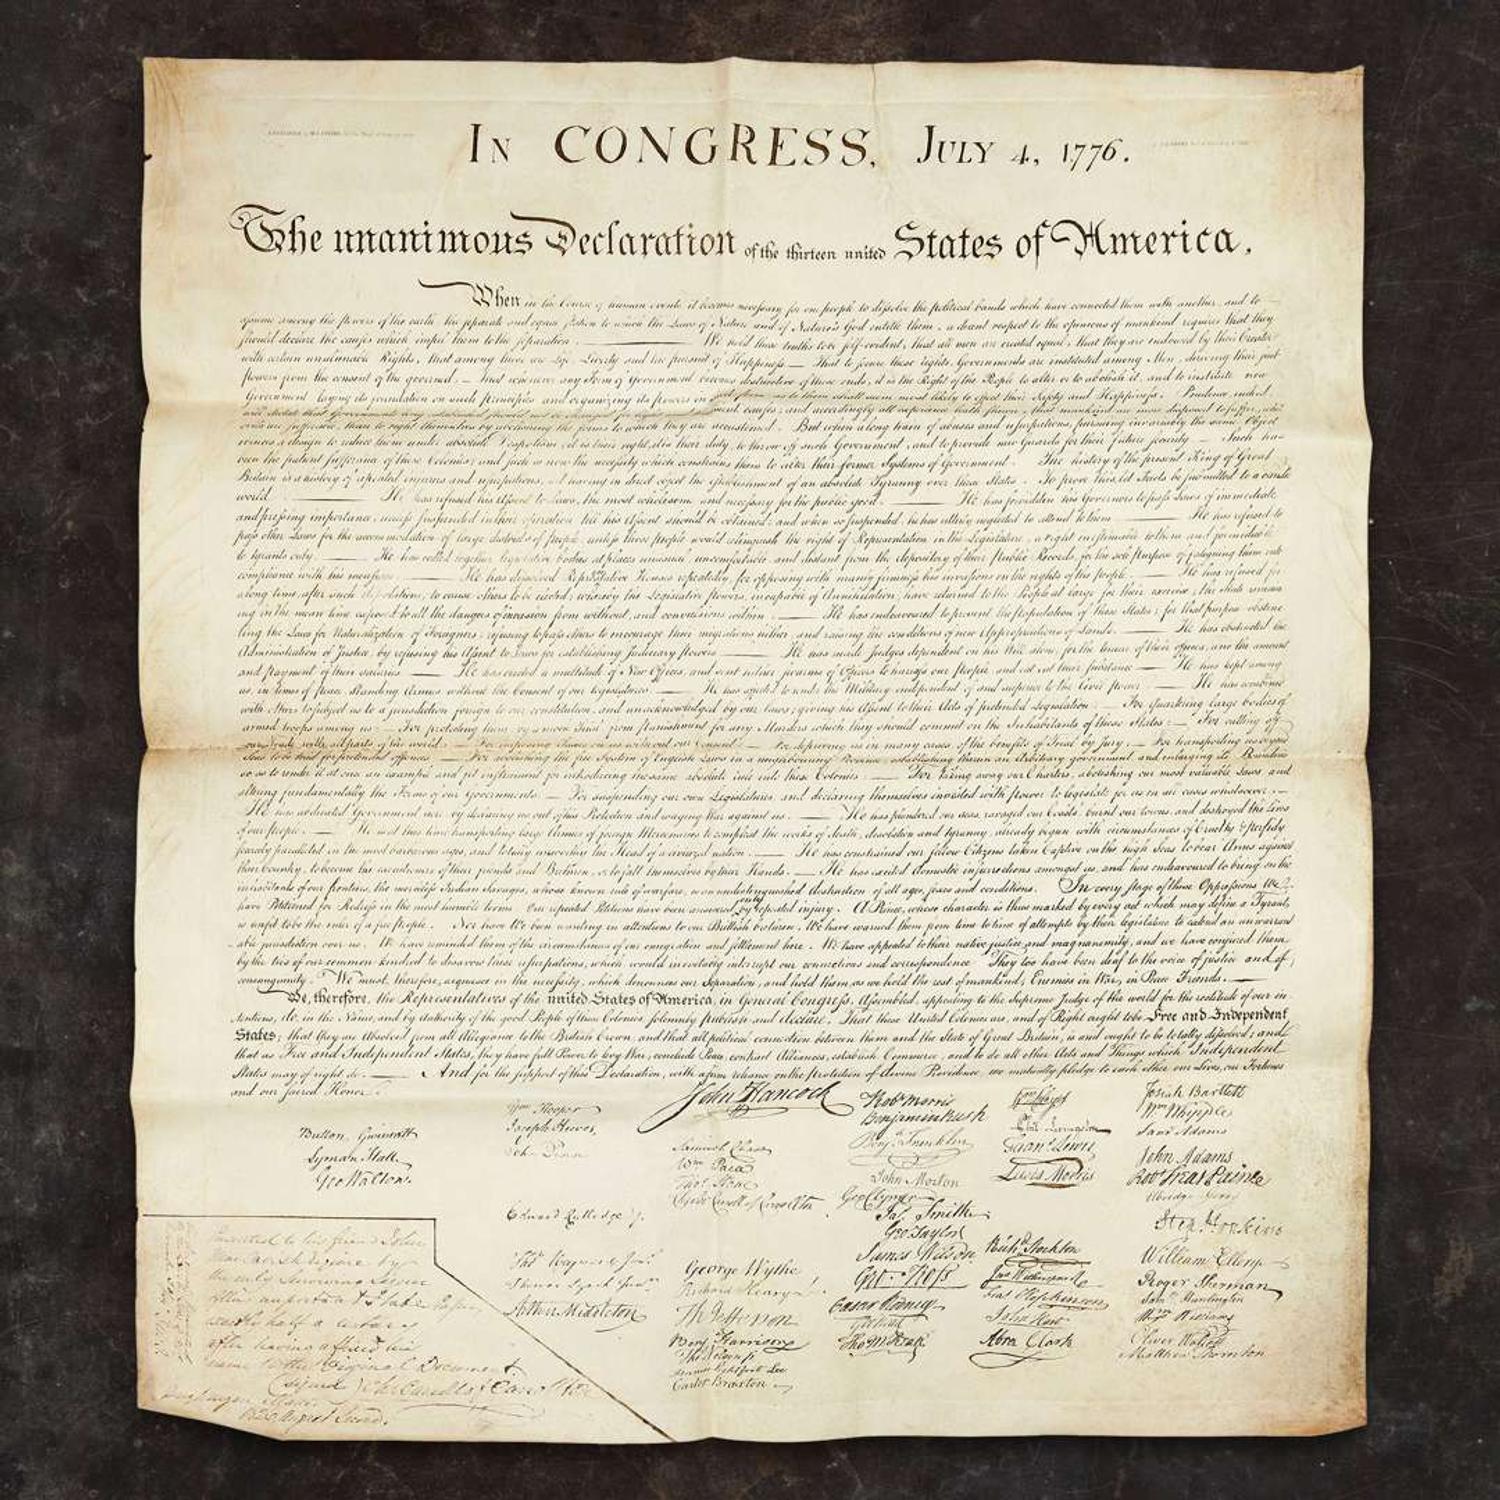 IN CONGRESS, JULY 4, 1776.
The unanimous Declaration of the thirteen united States of America,
When in the Course of human events it becomes necessary for one people to dissolve the political bands which have connected them with another, and to
assume among the powers of the earth, the separate and equal station to which the Laws of Nature and of Nature's God entitle them, a decent respect to the opinions of mankind requires that they
should declare the causes which impel them to the separation. ——— We hold these truths to be self-evident, that all men are created equal, that they are endowed by their Creator
with certain unalienable Rights, that among these are Life, Liberty and the pursuit of Happiness. — That to secure these rights, Governments are instituted among Men, deriving their just
powers from the consent of the governed, — That whenever any Form of Government becomes destructive of these ends, it is the Right of the People to alter or to abolish it, and to institute new
Government, laying its foundation on such principles and organizing its powers in such form, as to them shall seem most likely to effect their Safety and Happiness. Prudence, indeed,
will dictate that Governments long established should not be changed for light and transient causes; and accordingly all experience hath shewn, that mankind are more disposed to suffer, while
evils are sufferable, than to right themselves by abolishing the forms to which they are accustomed. But when a long train of abuses and usurpations, pursuing invariably the same Object
evinces a design to reduce them under absolute Despotism, it is their right, it is their duty, to throw off such Government, and to provide new Guards for their future security. — Such has
been the patient sufferance of these Colonies; and such is now the necessity which constrains them to alter their former Systems of Government. The history of the present King of Great
Britain is a history of repeated injuries and usurpations, all having in direct object the establishment of an absolute Tyranny over these States. To prove this, let Facts be submitted to a candid
world. ——— He has refused his Assent to Laws, the most wholesome and necessary for the public good. ——— He has forbidden his Governors to pass Laws of immediate
and pressing importance, unless suspended in their operation till his Assent should be obtained; and when so suspended, he has utterly neglected to attend to them. ——— He has refused to
pass other Laws for the accommodation of large districts of people, unless those people would relinquish the right of Representation in the Legislature, a right inestimable to them and formidable
to tyrants only. ——— He has called together legislative bodies at places unusual, uncomfortable, and distant from the depository of their Public Records, for the sole purpose of fatiguing them into
compliance with his measures. ——— He has dissolved Representative Houses repeatedly, for opposing with manly firmness his invasions on the rights of the people. ——— He has refused for
a long time, after such dissolutions, to cause others to be elected; whereby the Legislative powers, incapable of Annihilation, have returned to the People at large for their exercise; the State remain
ing in the mean time exposed to all the dangers of invasion from without, and convulsions within. ——— He has endeavoured to prevent the population of these States; for that purpose obstruc
ting the Laws for Naturalization of Foreigners; refusing to pass others to encourage their migrations hither, and raising the conditions of new Appropriations of Lands. ——— He has obstructed the
Administration of Justice, by refusing his Assent to Laws for establishing Judiciary powers. ——— He has made Judges dependent on his Will alone, for the tenure of their offices, and the amount
and payment of their salaries. ——— He has erected a multitude of New Offices, and sent hither swarms of Officers to harrass our people, and eat out their substance. — He has kept among
us, in times of peace, Standing Armies without the Consent of our legislatures. — He has affected to render the Military independent of and superior to the Civil power. — He has combined
with others to subject us to a jurisdiction foreign to our constitution, and unacknowledged by our laws; giving his Assent to their Acts of pretended Legislation: — For quartering large bodies of
armed troops among us: — For protecting them, by a mock Trial, from punishment for any Murders which they should commit on the Inhabitants of these States: — For cutting off
our Trade with all parts of the world: — For imposing Taxes on us without our Consent: — For depriving us in many cases, of the benefits of Trial by Jury: — For transporting us beyond
Seas to be tried for pretended offences — For abolishing the free System of English Laws in a neighbouring Province, establishing therein an Arbitrary government, and enlarging its Boundaries
so as to render it at once an example and fit instrument for introducing the same absolute rule into these Colonies: — For taking away our Charters, abolishing our most valuable Laws, and
altering fundamentally the Forms of our Governments: — For suspending our own Legislatures, and declaring themselves invested with power to legislate for us in all cases whatsoever. —
He has abdicated Government here, by declaring us out of his Protection and waging War against us. ——— He has plundered our seas, ravaged our Coasts, burnt our towns, and destroyed the lives
of our people. — He is at this time transporting large Armies of foreign Mercenaries to compleat the works of death, desolation and tyranny, already begun with circumstances of Cruelty & perfidy
scarcely paralleled in the most barbarous ages, and totally unworthy the Head of a civilized nation. — He has constrained our fellow Citizens taken Captive on the high Seas to bear Arms against
their Country, to become the executioners of their friends and Brethren, or to fall themselves by their Hands. — He has excited domestic insurrections amongst us, and has endeavoured to bring on the
inhabitants of our frontiers, the merciless Indian Savages, whose known rule of warfare, is an undistinguished destruction of all ages, sexes and conditions. In every stage of these Oppressions We
have Petitioned for Redress in the most humble terms: Our repeated Petitions have been answered only by repeated injury. A Prince, whose character is thus marked by every act which may define a Tyrant,
is unfit to be the ruler of a free people. Nor have We been wanting in attentions to our Brittish brethren. We have warned them from time to time of attempts by their legislature to extend an unwarrant
able jurisdiction over us. We have reminded them of the circumstances of our emigration and settlement here. We have appealed to their native justice and magnanimity, and we have conjured them
by the ties of our common kindred to disavow these usurpations, which, would inevitably interrupt our connections and correspondence. They too have been deaf to the voice of justice and of
consanguinity. We must, therefore, acquiesce in the necessity, which denounces our Separation, and hold them, as we hold the rest of mankind, Enemies in War, in Peace Friends. —
We, therefore, the Representatives of the united States of America, in General Congress, Assembled, appealing to the Supreme Judge of the world for the rectitude of our in
tentions, do, in the Name, and by Authority of the good People of these Colonies, solemnly publish and declare, That these United Colonies are, and of Right ought to be Free and Independent
States; that they are Absolved from all Allegiance to the British Crown, and that all political connection between them and the State of Great Britain, is and ought to be totally dissolved; and
that as Free and Independent States, they have full Power to levy War, conclude Peace, contract Alliances, establish Commerce, and to do all other Acts and Things which Independent
States may of right do. ——— And for the support of this Declaration, with a firm reliance on the protection of divine Providence, we mutually pledge to each other our Lives, our Fortunes
and our sacred Honor.
Button Gwinnett
Lyman Hall
Geo Walton.
Wm Hooper
Joseph Hewes,
John Penn
Edward Rutledge
Thos Heyward Junr.
Thomas Lynch Junr.
Arthur Middleton
John Hancock
Samuel Chase
Wm Paca
Thos Stone
Charles Carroll of Carrollton
George Wythe
Richard Henry Lee
Th Jefferson
Benj Harrison
Thos Nelson jr
Francis Lightfoot Lee
Carter Braxton
Robt Morris
Benjamin Rush
Benj. Franklin
John Morton
Geo Clymer
Jas. Smith
Geo. Taylor
James Wilson
Geo. Ross
Caesar Rodney
Geo Read
Tho M:Kean
Wm Floyd
Phil. Livingston
Frans. Lewis
Lewis Morris
Richd. Stockton
Jno Witherspoon
Fras. Hopkinson
John Hart
Abra Clark
Josiah Bartlett
Wm Whipple
Saml Adams
John Adams
Robt Treat Paine
Elbridge Gerry
Step. Hopkins
William Ellery
Roger Sherman
Saml Huntington
Wm Williams
Oliver Wolcott
Matthew Thornton
Presented to his friend John
MacTavish Esquire by
the only Surviving Signer
of this important State Paper
exactly half a century
after having affixed his
name to the Original Document
(signed) Ch. Carroll of Carrollton
1826 August Second.